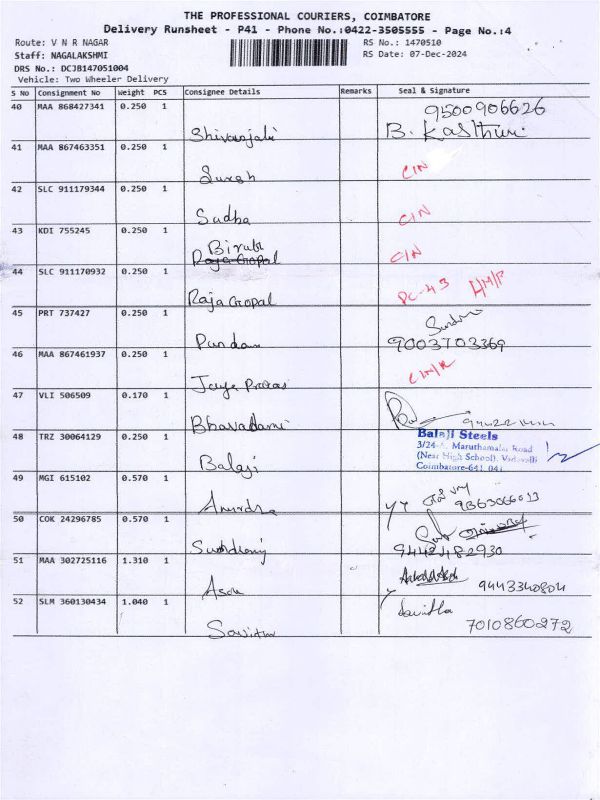 THE PROFESSIONAL COURIERS, COIMBATORE
Delivery Runsheet - P41 - Phone No.:0422-3505555 - Page No.:4
Route: V N R NAGAR
RS No.: 1470510
Staff: NAGALAKSHMI
RS Date: 07-Dec-2024
DRS No.: DCJB147051004
Vehicle: Two Wheeler Delivery
S No Consignment No Weight PCS Consignee Details Remarks Seal & Signature
40 MAA 868427341 0.250 1
9500906626
Shivanjali B. Kasthuri
41 MAA 867463351 0.250 1
Suresh CIN
42 SLC 911179344 0.250 1
Sudha CIN
43 KDI 755245 0.250 1
CIN
44 SLC 911170932 0.250 1
Raja Gopal DC-43
45 PRT 737427 0.250 1
9003703369
46 MAA 867461937 0.250 1
CIN/R
47 VLI 506509 0.170 1
48 TRZ 30064129 0.250 1
Balaji
Balaji Steels
3/24-A, Maruthamalai Road
(Near High School), Vadavalli
Coimbatore-641 041
49 MGI 615102 0.570 1
9363066013
50 COK 24296785 0.570 1
9442482930
51 MAA 302725116 1.310 1
9443340804
52 SLM 360130434 1.040 1
Savitha
7010860272